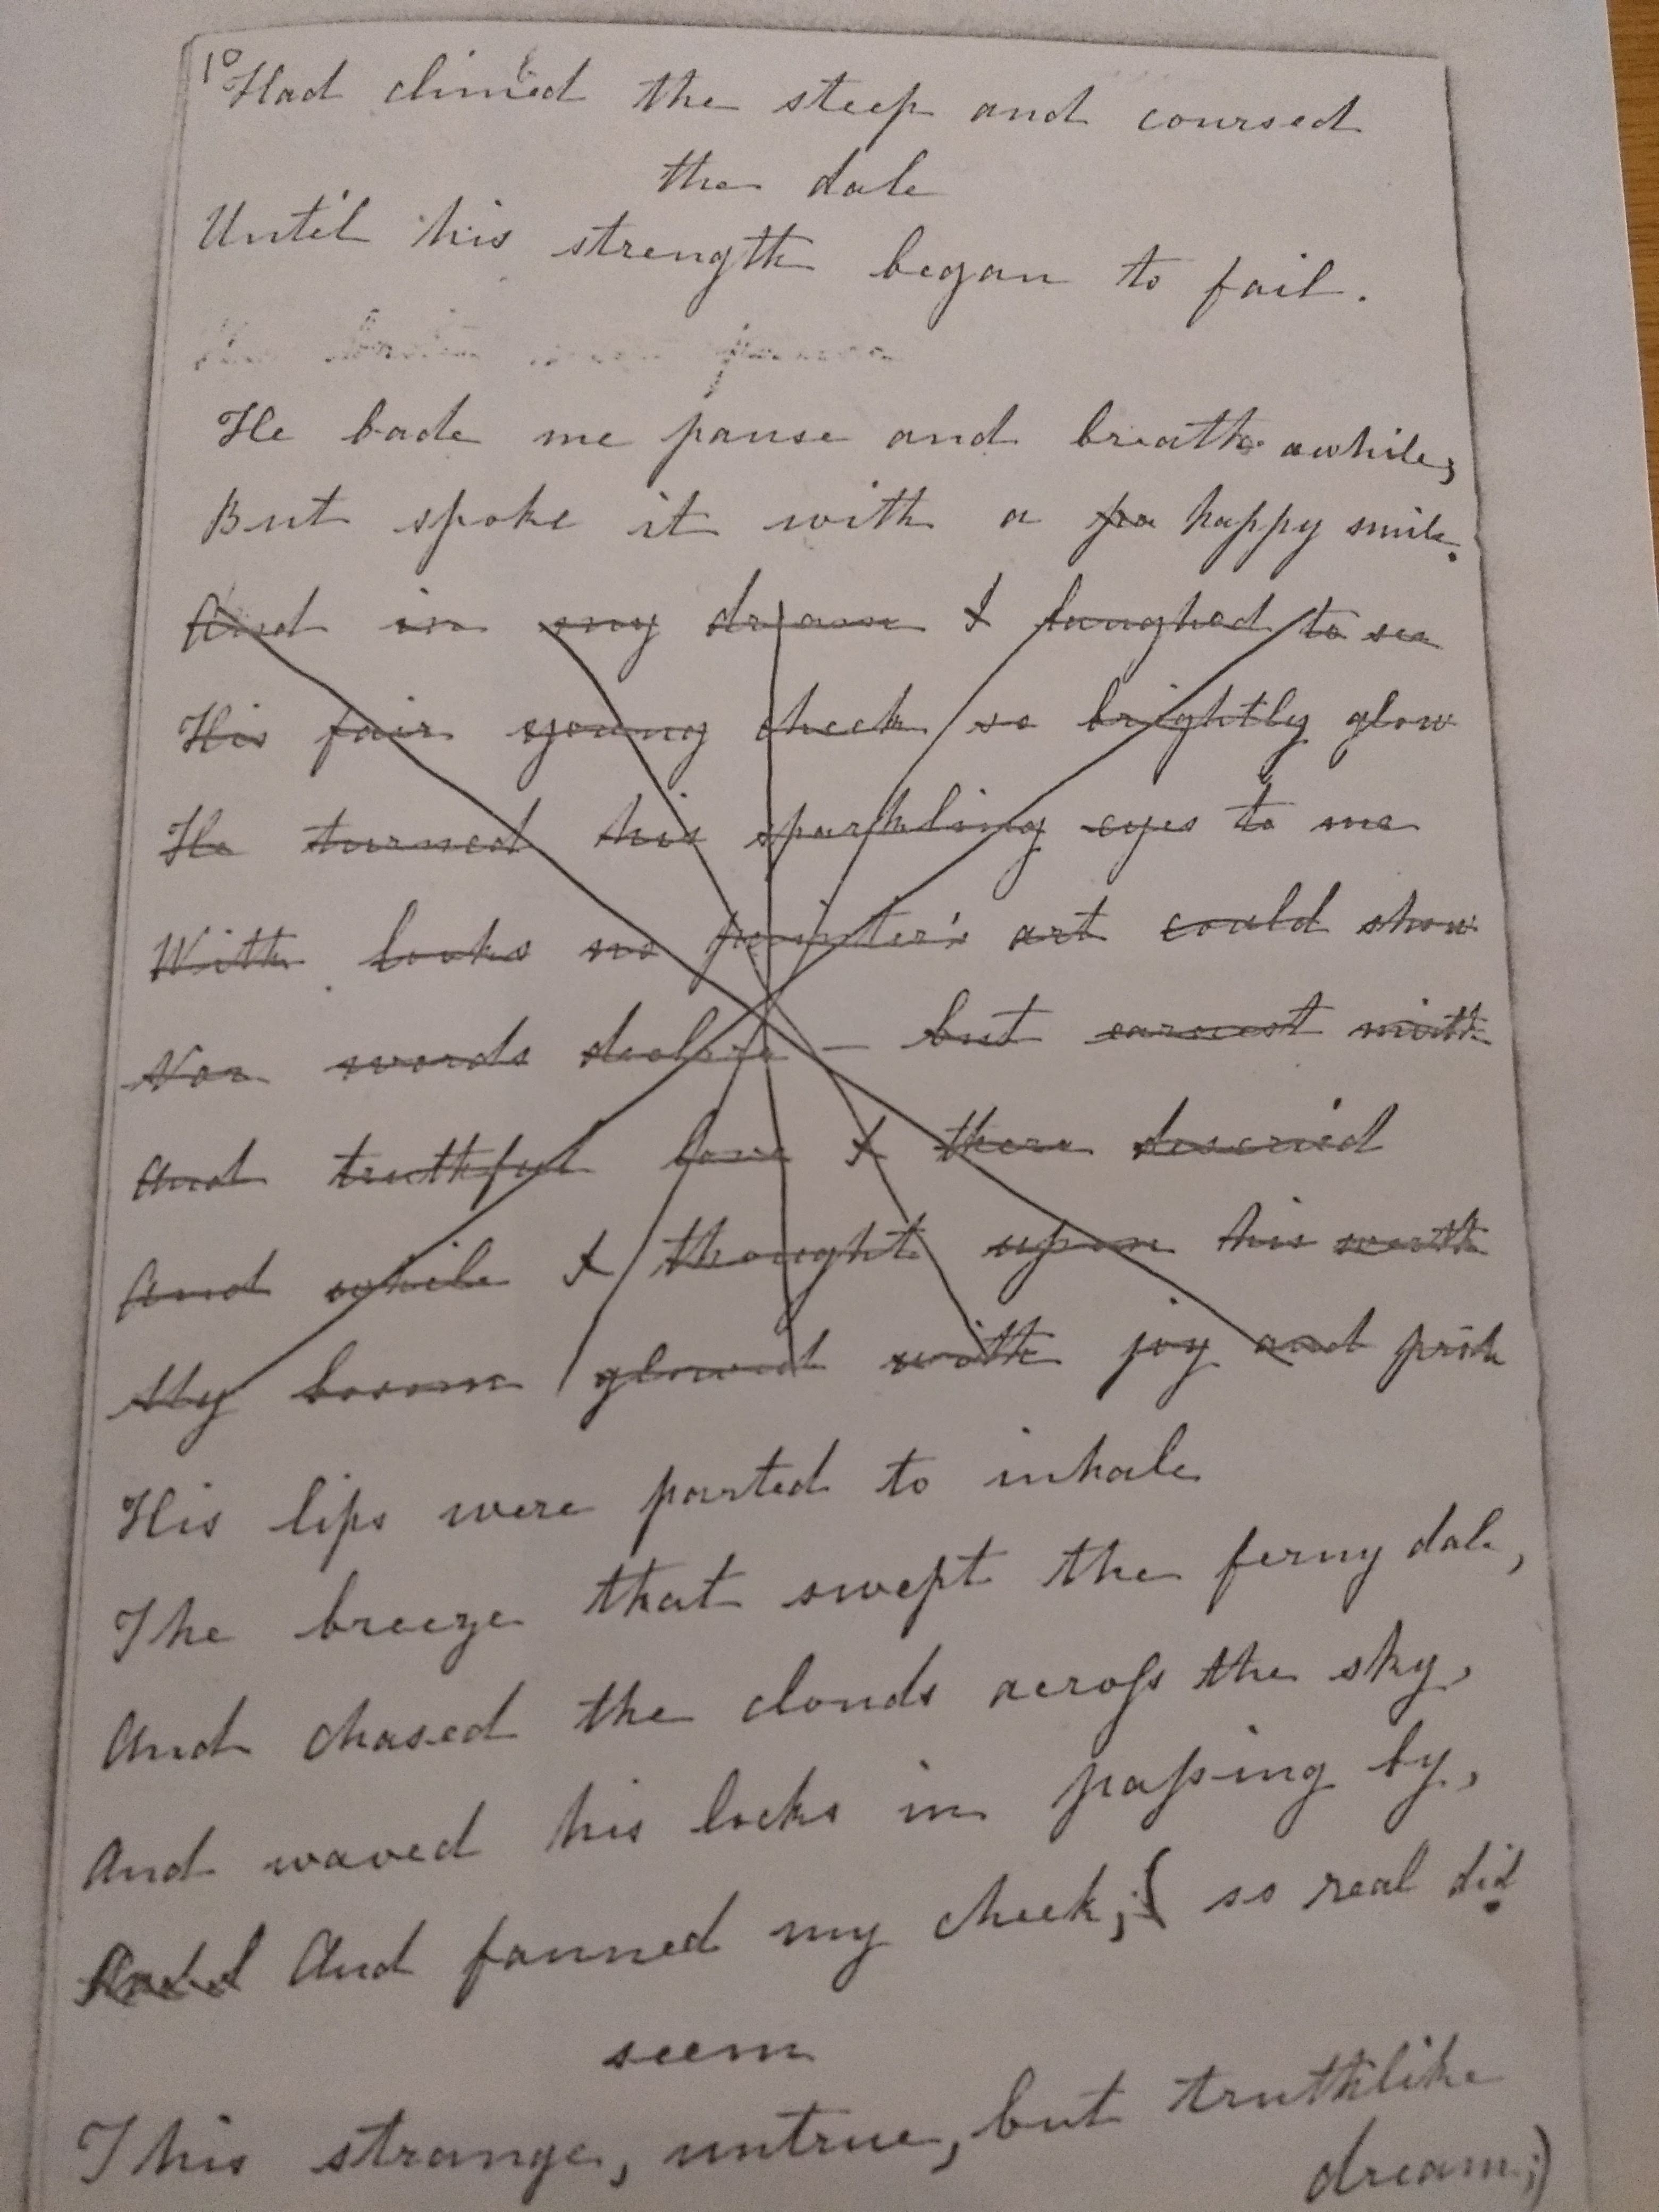 10
Had climbed the steep and coursed
the dale
Until his strength began to fail.
He bade me pause and breathe awhile,
But spoke it with a happy smile.
And in my dream I laughed to see
His fair young cheek so brightly glow
He turned his sparkling eyes to me
With looks no painter's art could show
Nor words declare — but earnest mirth
And truthful love I there descried
And while I thought upon his worth
My bosom glowed with joy and pride
His lips were parted to inhale
The breeze that swept the ferny dale,
And chased the clouds across the sky,
And waved his locks in passing by,
And fanned my cheek; ( so real did
seem
This strange, untrue, but truthlike
dream;)